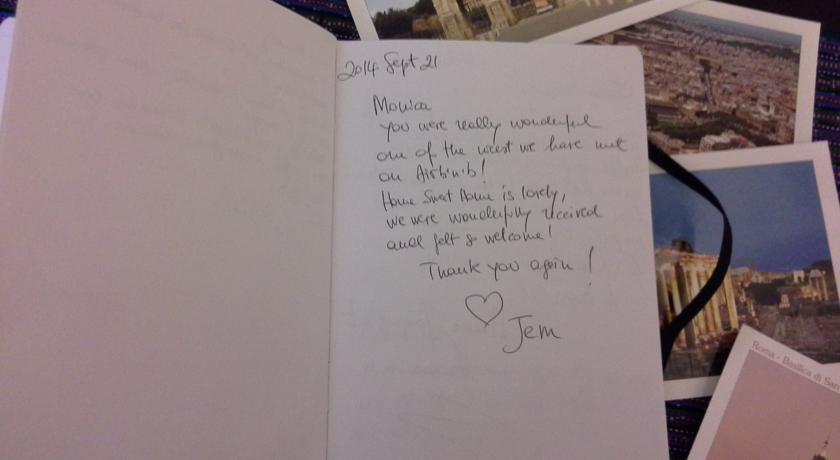 2014 Sept 21
Monica
you were really wonderful
one of the nicest we have met
on Airb'n'b!
Home Sweet Home is lovely,
we were wonderfully received
and felt so welcome!
Thank you again!
Jem
Roma - Basilica di San